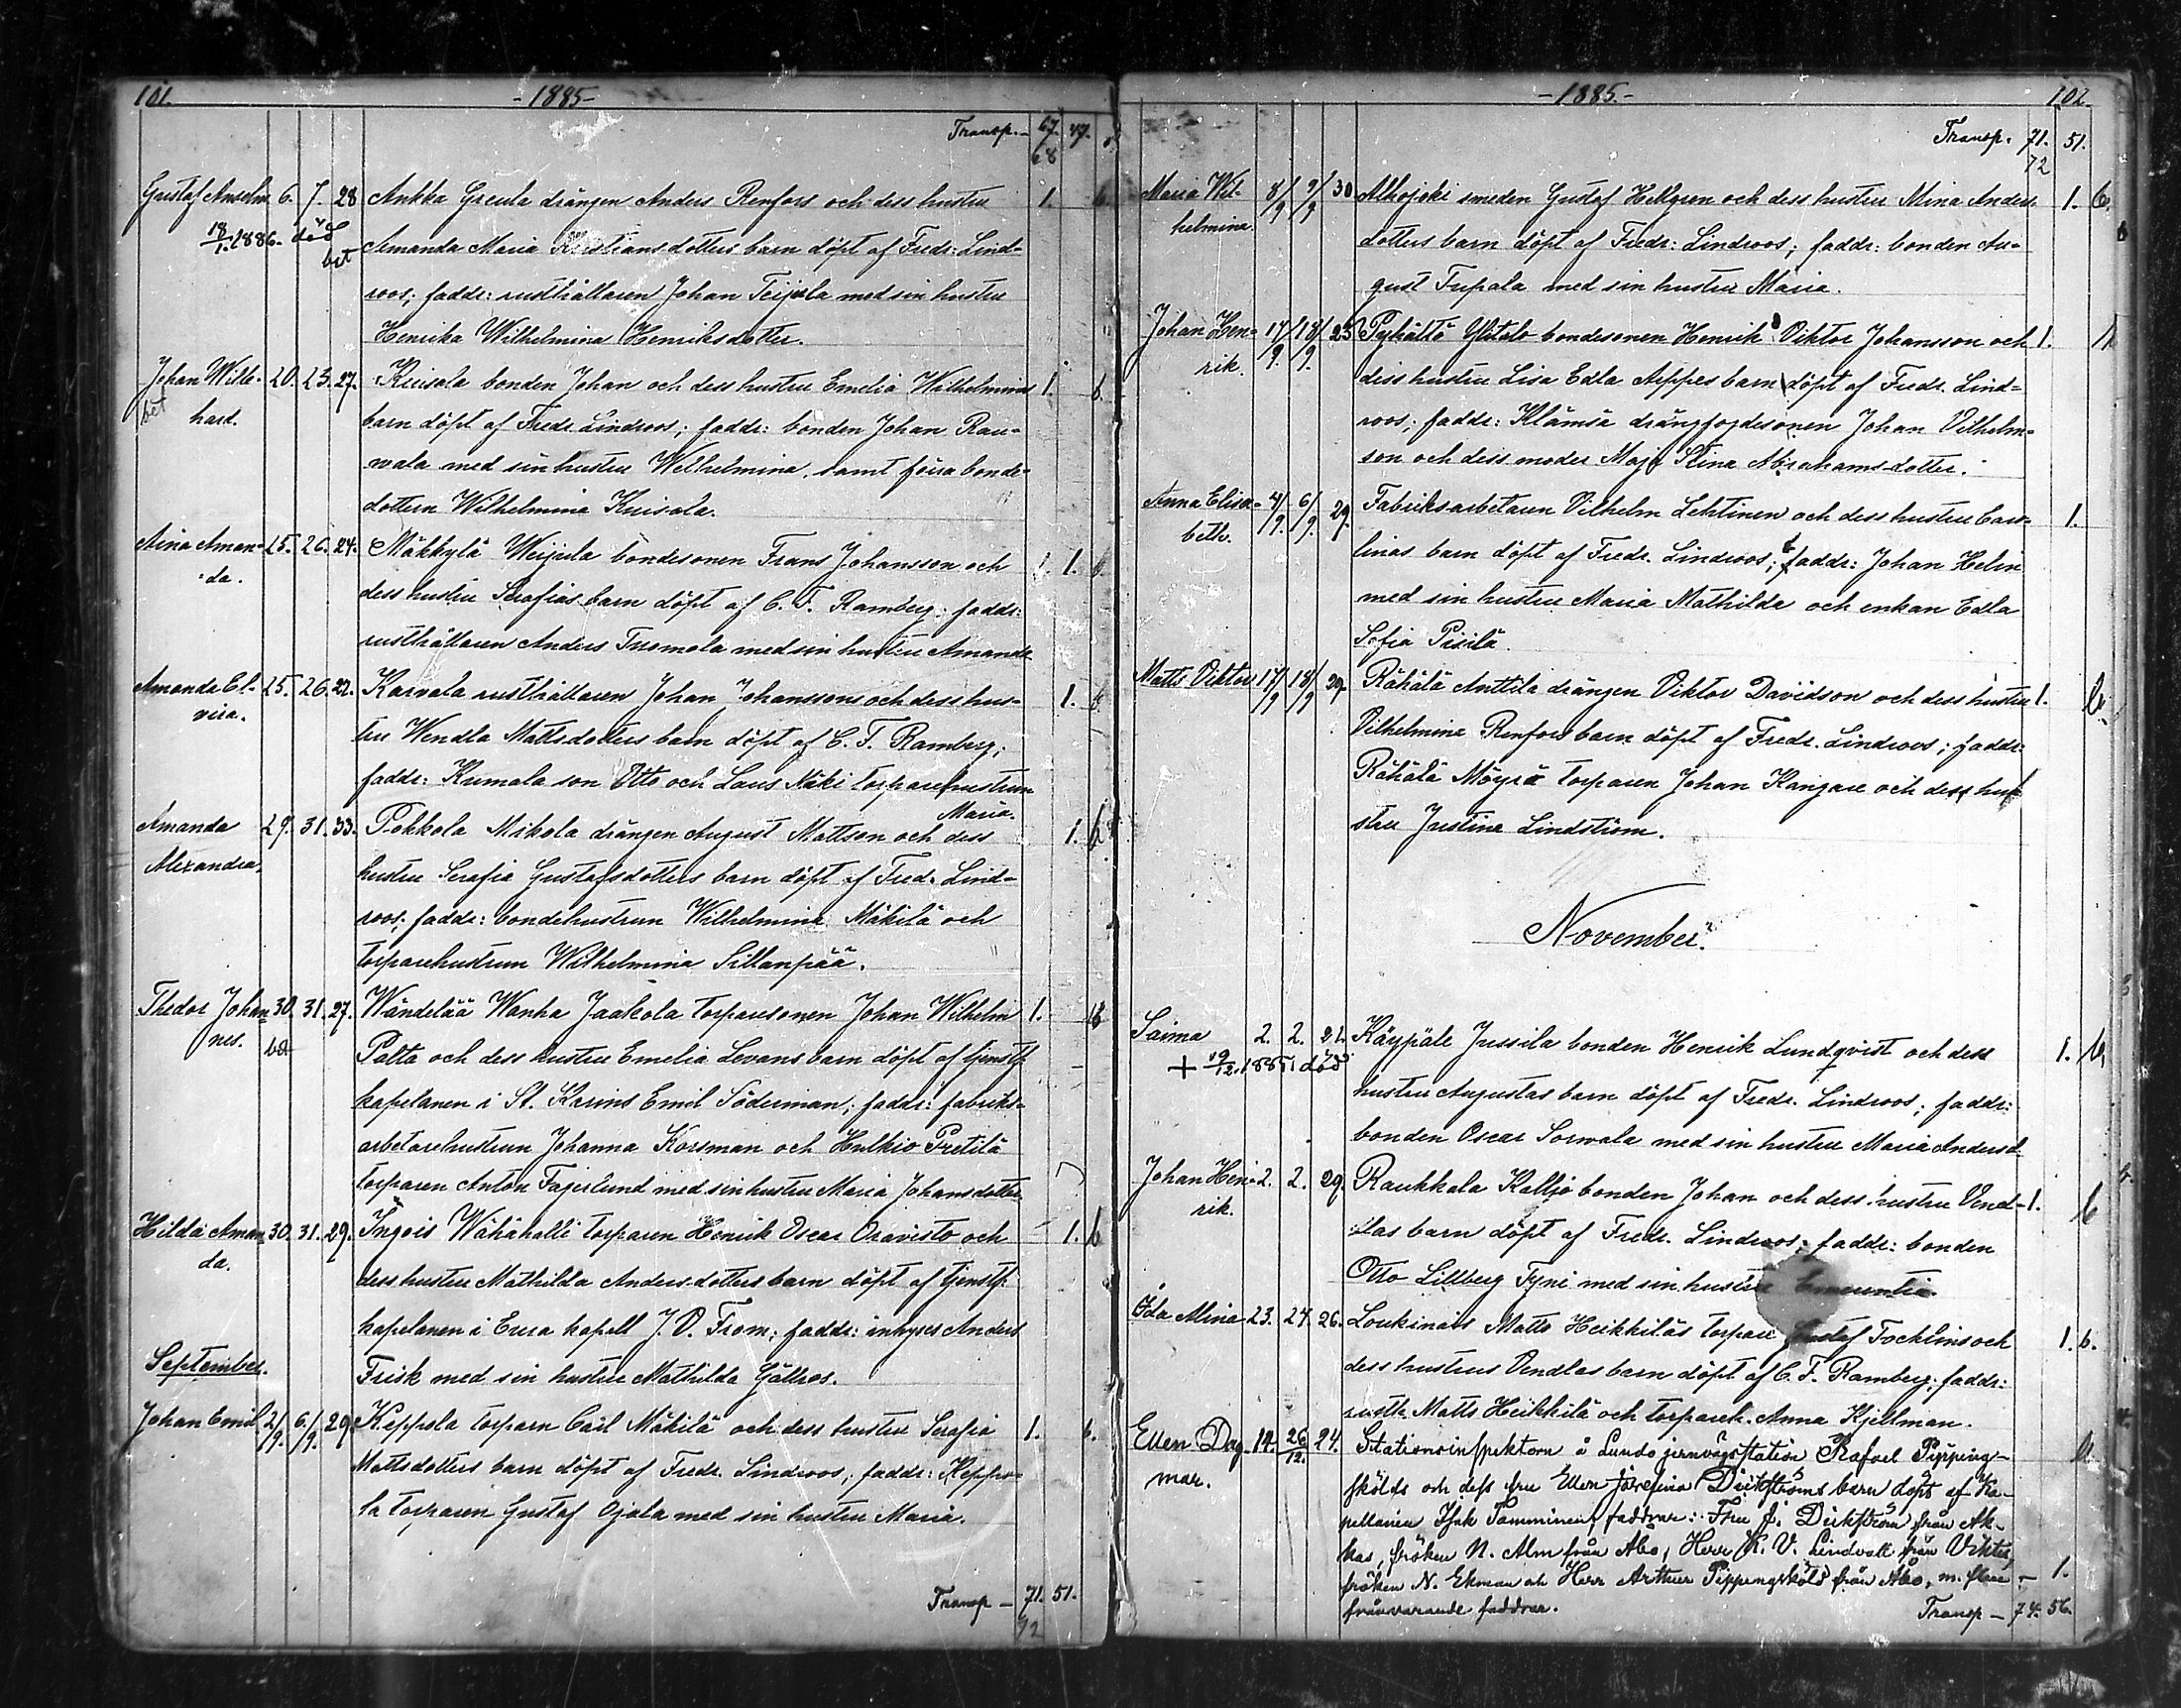 101. -1885-
Transp. - 67. 47.
68
Gustaf Anselm 6. 7. 28 Ankka Greula drängen Anders Renfors och dess hustru 1. b.
18/1. 1886. död Amanda Maria Kristiansdotters barn döpt af Fredr: Lind-
bet
roos; faddr: rusthållaren Johan Teijula med sin hustru
Henrika Wilhelmina Henriksdotter.
Johan Wille- 20. 23. 27. Kuisola bonden Johan och dess hustru Emelia Wilhelmina 1. b.
bet hard. barn döpt af Fredr. Lindroos; faddr: bonden Johan Rau-
wala med sin hustru Wilhelmina samt förra bonde-
dottern Wilhelmina Kuisola.
Aina Aman- 25. 26. 24. Mäkkylä Weijula bondesonen Frans Johansson och 1. b.
da. dess hustru Serafias barn döpt af C. F. Ramberg; faddr:
rusthållaren Anders Tuomola med sin hustru Amanda
Amanda El- 25. 26. 22. Karvala rusthållaren Johan Johanssons och dess hus- 1.
vira. tru Wendla Mattsdotters barn döpt af C. F. Ramberg;
faddr: Kumala son Otto och Laus Mäki torparehustrun
Maria.
Amanda 29. 31. 33. Pokkola Mikola drängen August Mattson och dess 1. b
Alexandra, hustru Serafia Gustafsdotters barn döpt af Fred. Lind-
roos; faddr: bondehustrun Wilhelmina Mäkilä och
torparehustrun Wilhelmina Sillanpää.
Thedor Johan- 30. 31. 27. Wändelää Wanha Jaakola torparesonen Johan Wilhelm 1. b
nes. bet Palta och dess hustru Emelia Levans barn döpt af tjenstf.
kapelanen i St. Karins Emil Söderman; faddr: fabriks-
arbetarehustrun Johanna Korsman och Hulkio Pretilä
torparen Anton Fagerlund med sin hustru Maria Johansdotter
Hilda Aman- 30. 31. 29. Ingois Wähähalli torparen Henrik Oscar Oravisto och 1. b
da. dess hustru Mathilda Anders-dotters barn döpt af tjenstf.
kapelanen i Eura kapell J. V. From; faddr: inhyses Anders
September. Frisk med sin hustru Mathilda Gällros.
Johan Emil 2/9. 6/9. 29 Keppola torparn Carl Mäkilä och dess hustru Serafia 1. b.
Mattsdotters barn döpt af Fredr. Lindroos; faddr: Keppo-
la torparen Gustaf Ojala med sin hustru Maria.
Transp - 71. 51.
72
-1885.- 102.
Transp. 71. 51.
72
Maria Wil- 8/9 9/9 30 Alhojoki smeden Gustaf Hellgren och dess hustru Mina Anders 1. b.
helmina. dotters barn döpt af Fredr: Lindroos; faddr: bonden Au-
gust Tupala med sin hustru Maria.
Johan Hen- 17/9. 18/9. 23 Pyhältö Ylitalo bondesonen Henrik Viktor Johansson och 1.
rik. dess hustru Lisa Edla Aeppes barn döpt af Fredr. Lind-
roos; faddr: Klämsä drängfogdesonen Johan Vilhelm-
son och dess moder Maja Stina Abrahams-dotter.
Anna Elisa- 4/9. 6/9. 29. Fabriks-arbetaren Vilhelm Lehtinen och dess hustru Caro- 1.
beth. linas barn döpt af Fredr. Lindroos; faddr: Johan Helin
med sin hustru Maria Mathilda och enkan Edla
Sofia Pisilä.
Matts Viktor 17/9 18/9 29. Rähälä Anttila drängen Viktor Davidson och dess hustru 1. b.
Vilhelmina Renfors barn döpt af Fredr. Lindroos; faddr:
Rähälä Möyrä torparen Johan Kangare och dess hu-
stru Justina Lindström.
November.
Saima 2. 2. 22. Käypäle Jussila bonden Henrik Lundqvist och dess 1. b
+ 19/12. 1885 död hustru Augustas barn döpt af Fredr. Lindroos; faddr:
bonden Oscar Sorwala med sin hustru Maria Andersd.
Johan Hen- 2. 2. 29. Raukkala Kalljo bonden Johan och dess hustru Vend- 1. b
rik. las barn döpt af Fredr. Lindroos; faddr: bonden
Otto Lillberg Tyni med sin hustru
Ida Alina 23. 24. 26. Loukinais Matts Heikkiläs torpare Gustaf Tocklins och 1. b.
dess hustrus Vendlas barn döpt af C. F. Ramberg; faddr:
rusth. Matts Heikkilä och torpareh. Anna Kjellman.
Ellen Dag- 14. 26/12. 24. Stationsinspektorn å Lundo jernvägsstation Rafael Pipping-
mar. skölds och dess fru Ellen Josefina Dirkströms barn döpt af Ka-
pellanen Isak Tamminen; faddrar: Fru J. Dirkström från Ak-
kas, fröken N. Alm från Åbo, Herr K. V. Lindvall från Viktis,
fröken N. Ekman och Herr Arthur Pippingsköld från Åbo, m. flere - 1.
frånvarande faddrar. Transp - 74. 56.